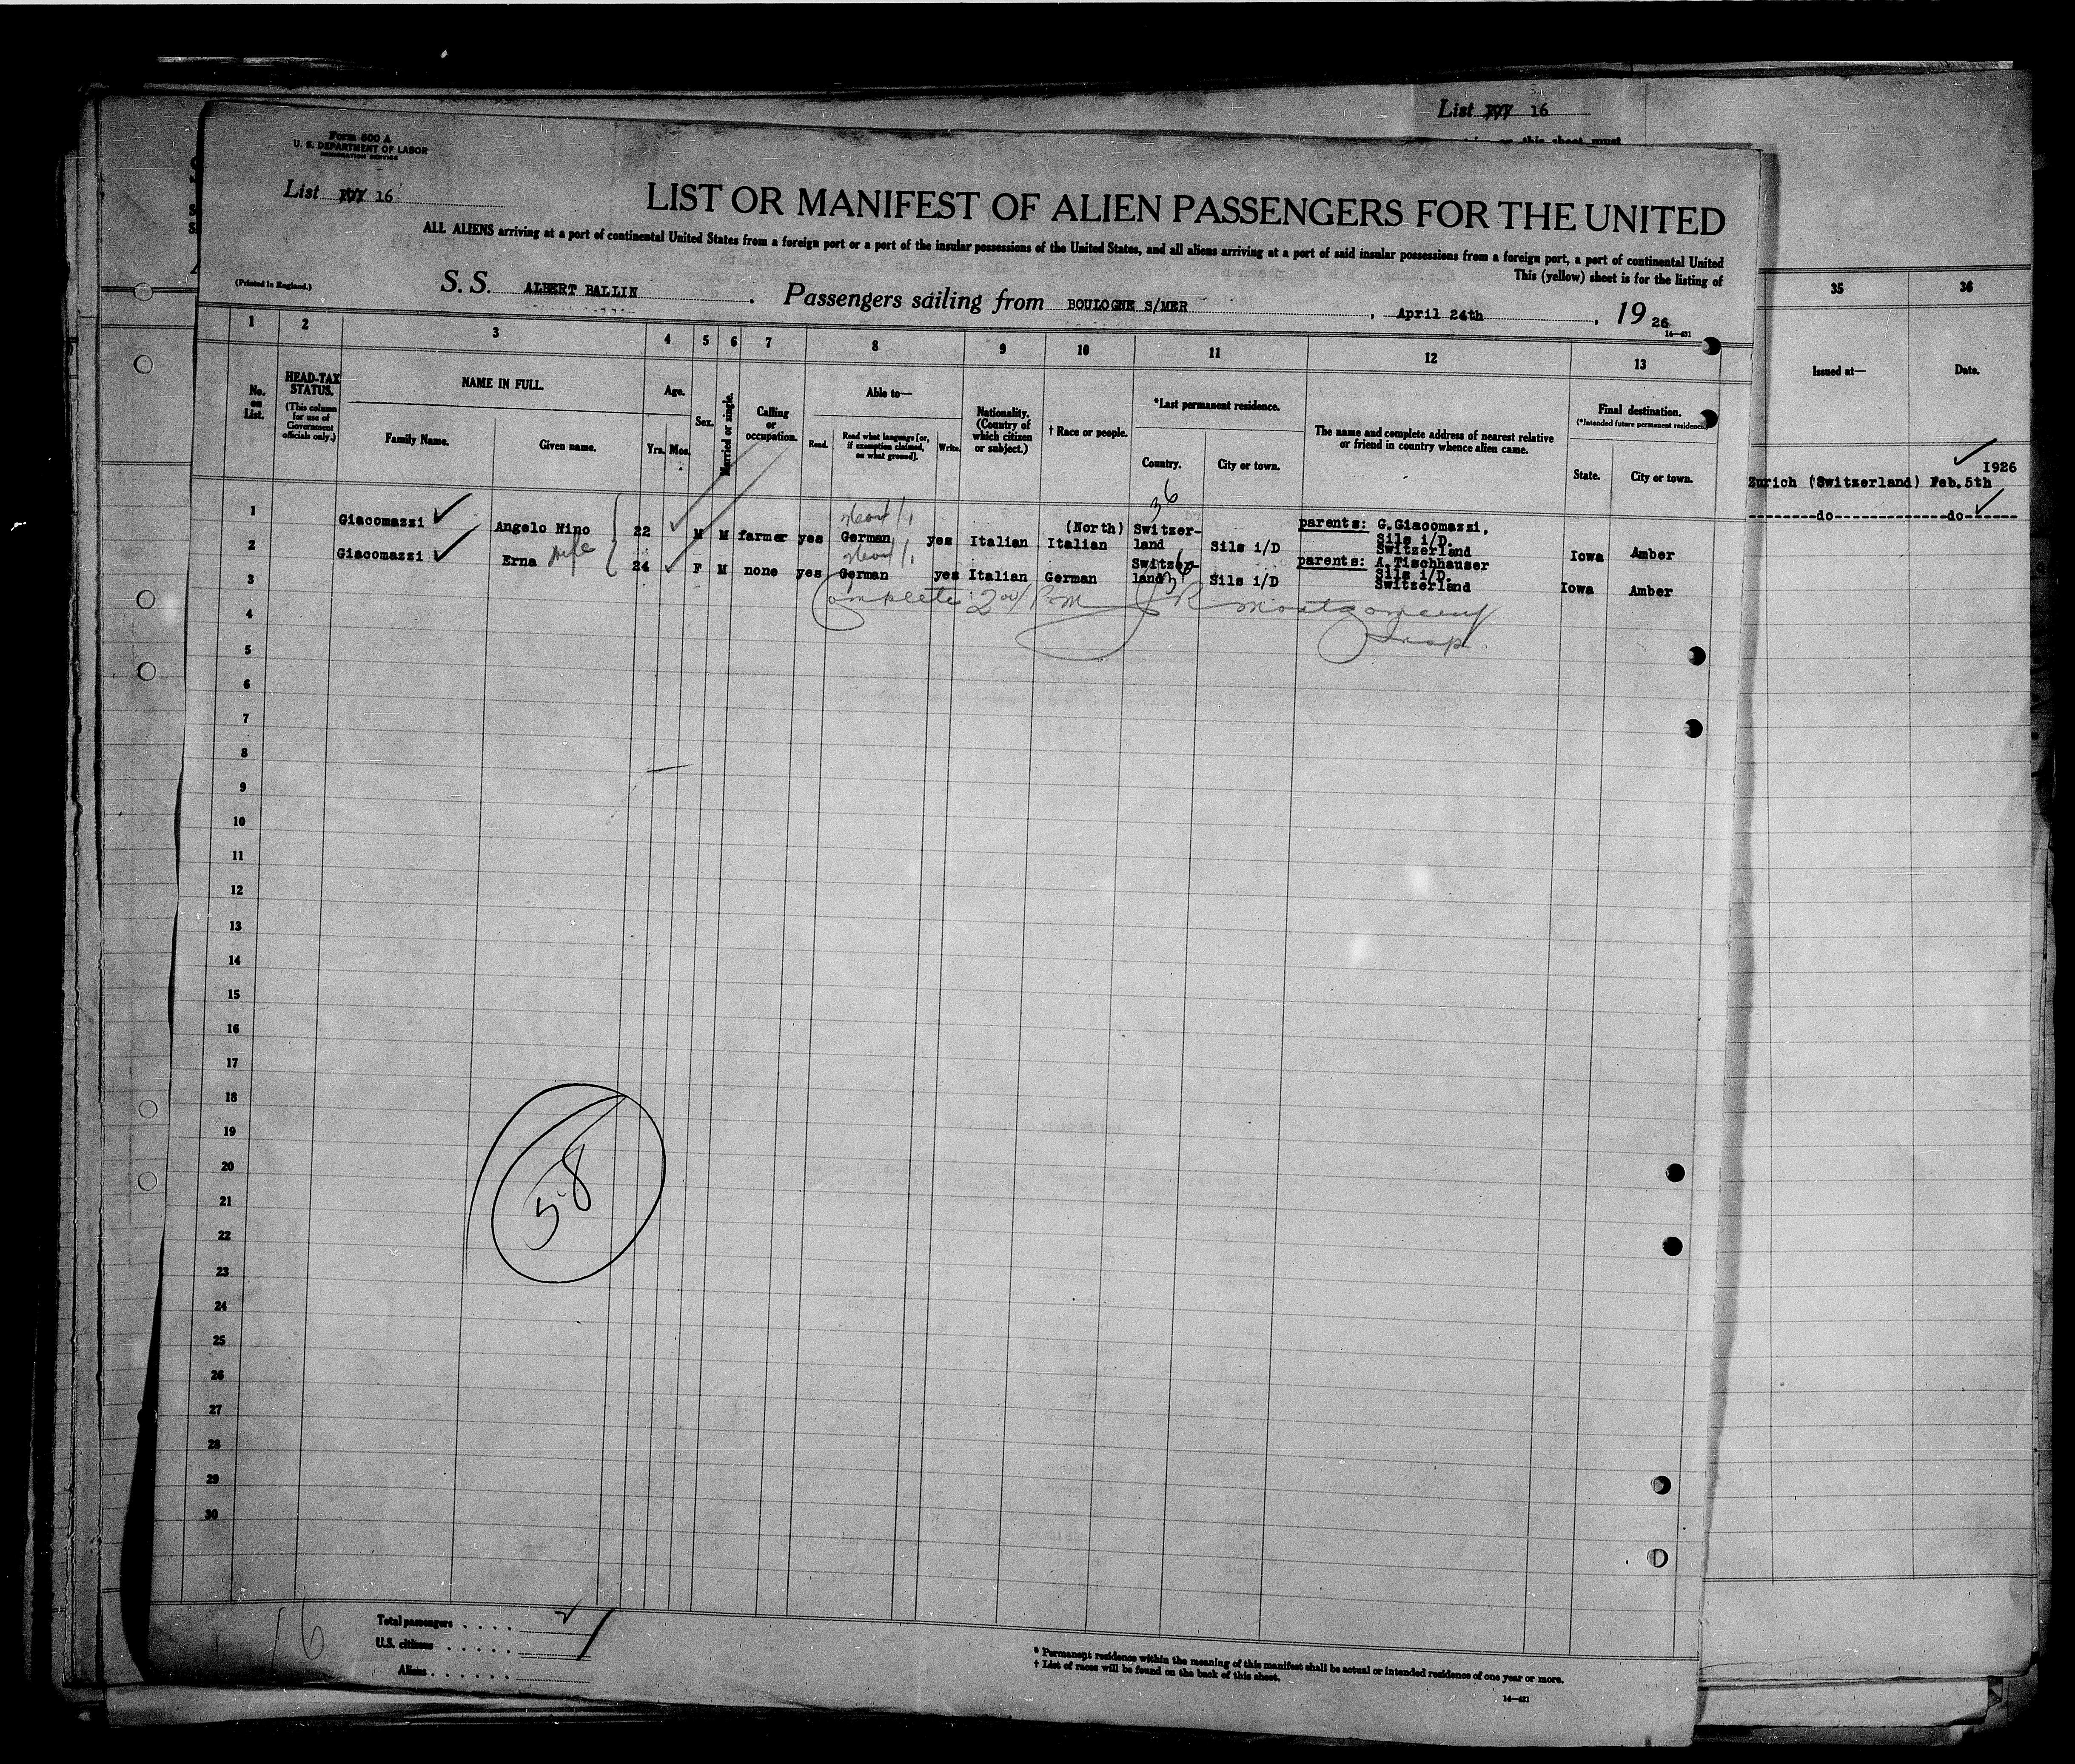 List 16
Form 500 A
U. S. DEPARTMENT OF LABOR
IMMIGRATION SERVICE
List 16
LIST OR MANIFEST OF ALIEN PASSENGERS FOR THE UNITED
ALL ALIENS arriving at a port of continental United States from a foreign port or a port of the insular possessions of the United States, and all aliens arriving at a port of said insular possessions from a foreign port, a port of continental United
This (yellow) sheet is for the listing of
(Printed in England.)
S. S. ALBERT BALLIN . Passengers sailing from BOULOGNE S/MER , April 24th , 19 26
14—431
1 2 3 4 5 6 7 8 9 10 11 12 13 35 36
No. on List.
HEAD-TAX STATUS.
(This column for use of Government officials only.)
NAME IN FULL.
Family Name. Given name.
Age.
Yrs. Mos.
Sex.
Married or single.
Calling or occupation.
Able to—
Read. Read what language [or, if exemption claimed, on what ground]. Write.
Nationality. (Country of which citizen or subject.)
† Race or people.
*Last permanent residence.
Country. City or town.
The name and complete address of nearest relative or friend in country whence alien came.
Final destination.
(*Intended future permanent residence.)
State. City or town.
Issued at— Date.
1 Giacomazzi Angelo Nino 22 M M farmer yes German yes Italian (North) Italian Switzer-land Sils i/D parents: G.Giacomazzi, Sils i/D. Switzerland Iowa Amber
Zurich (Switzerland) Feb.5th 1926
2 Giacomazzi Erna wife 24 F M none yes German yes Italian German Switzer-land Sils i/D parents: A. Tischhauser Sils i/D. Switzerland Iowa Amber
-------do------------------do-------
36
36
3
Complete J R Montgomery
Insp.
4
5
6
7
8
9
10
11
12
13
14
15
16
17
18
19
20
21
22
23
24
25
26
27
28
29
30
58
16
Total passengers . . . . 2
U.S. citizens . . . . .
Aliens . . . . . .
* Permanent residence within the meaning of this manifest shall be actual or intended residence of one year or more.
† List of races will be found on the back of this sheet.
14—431